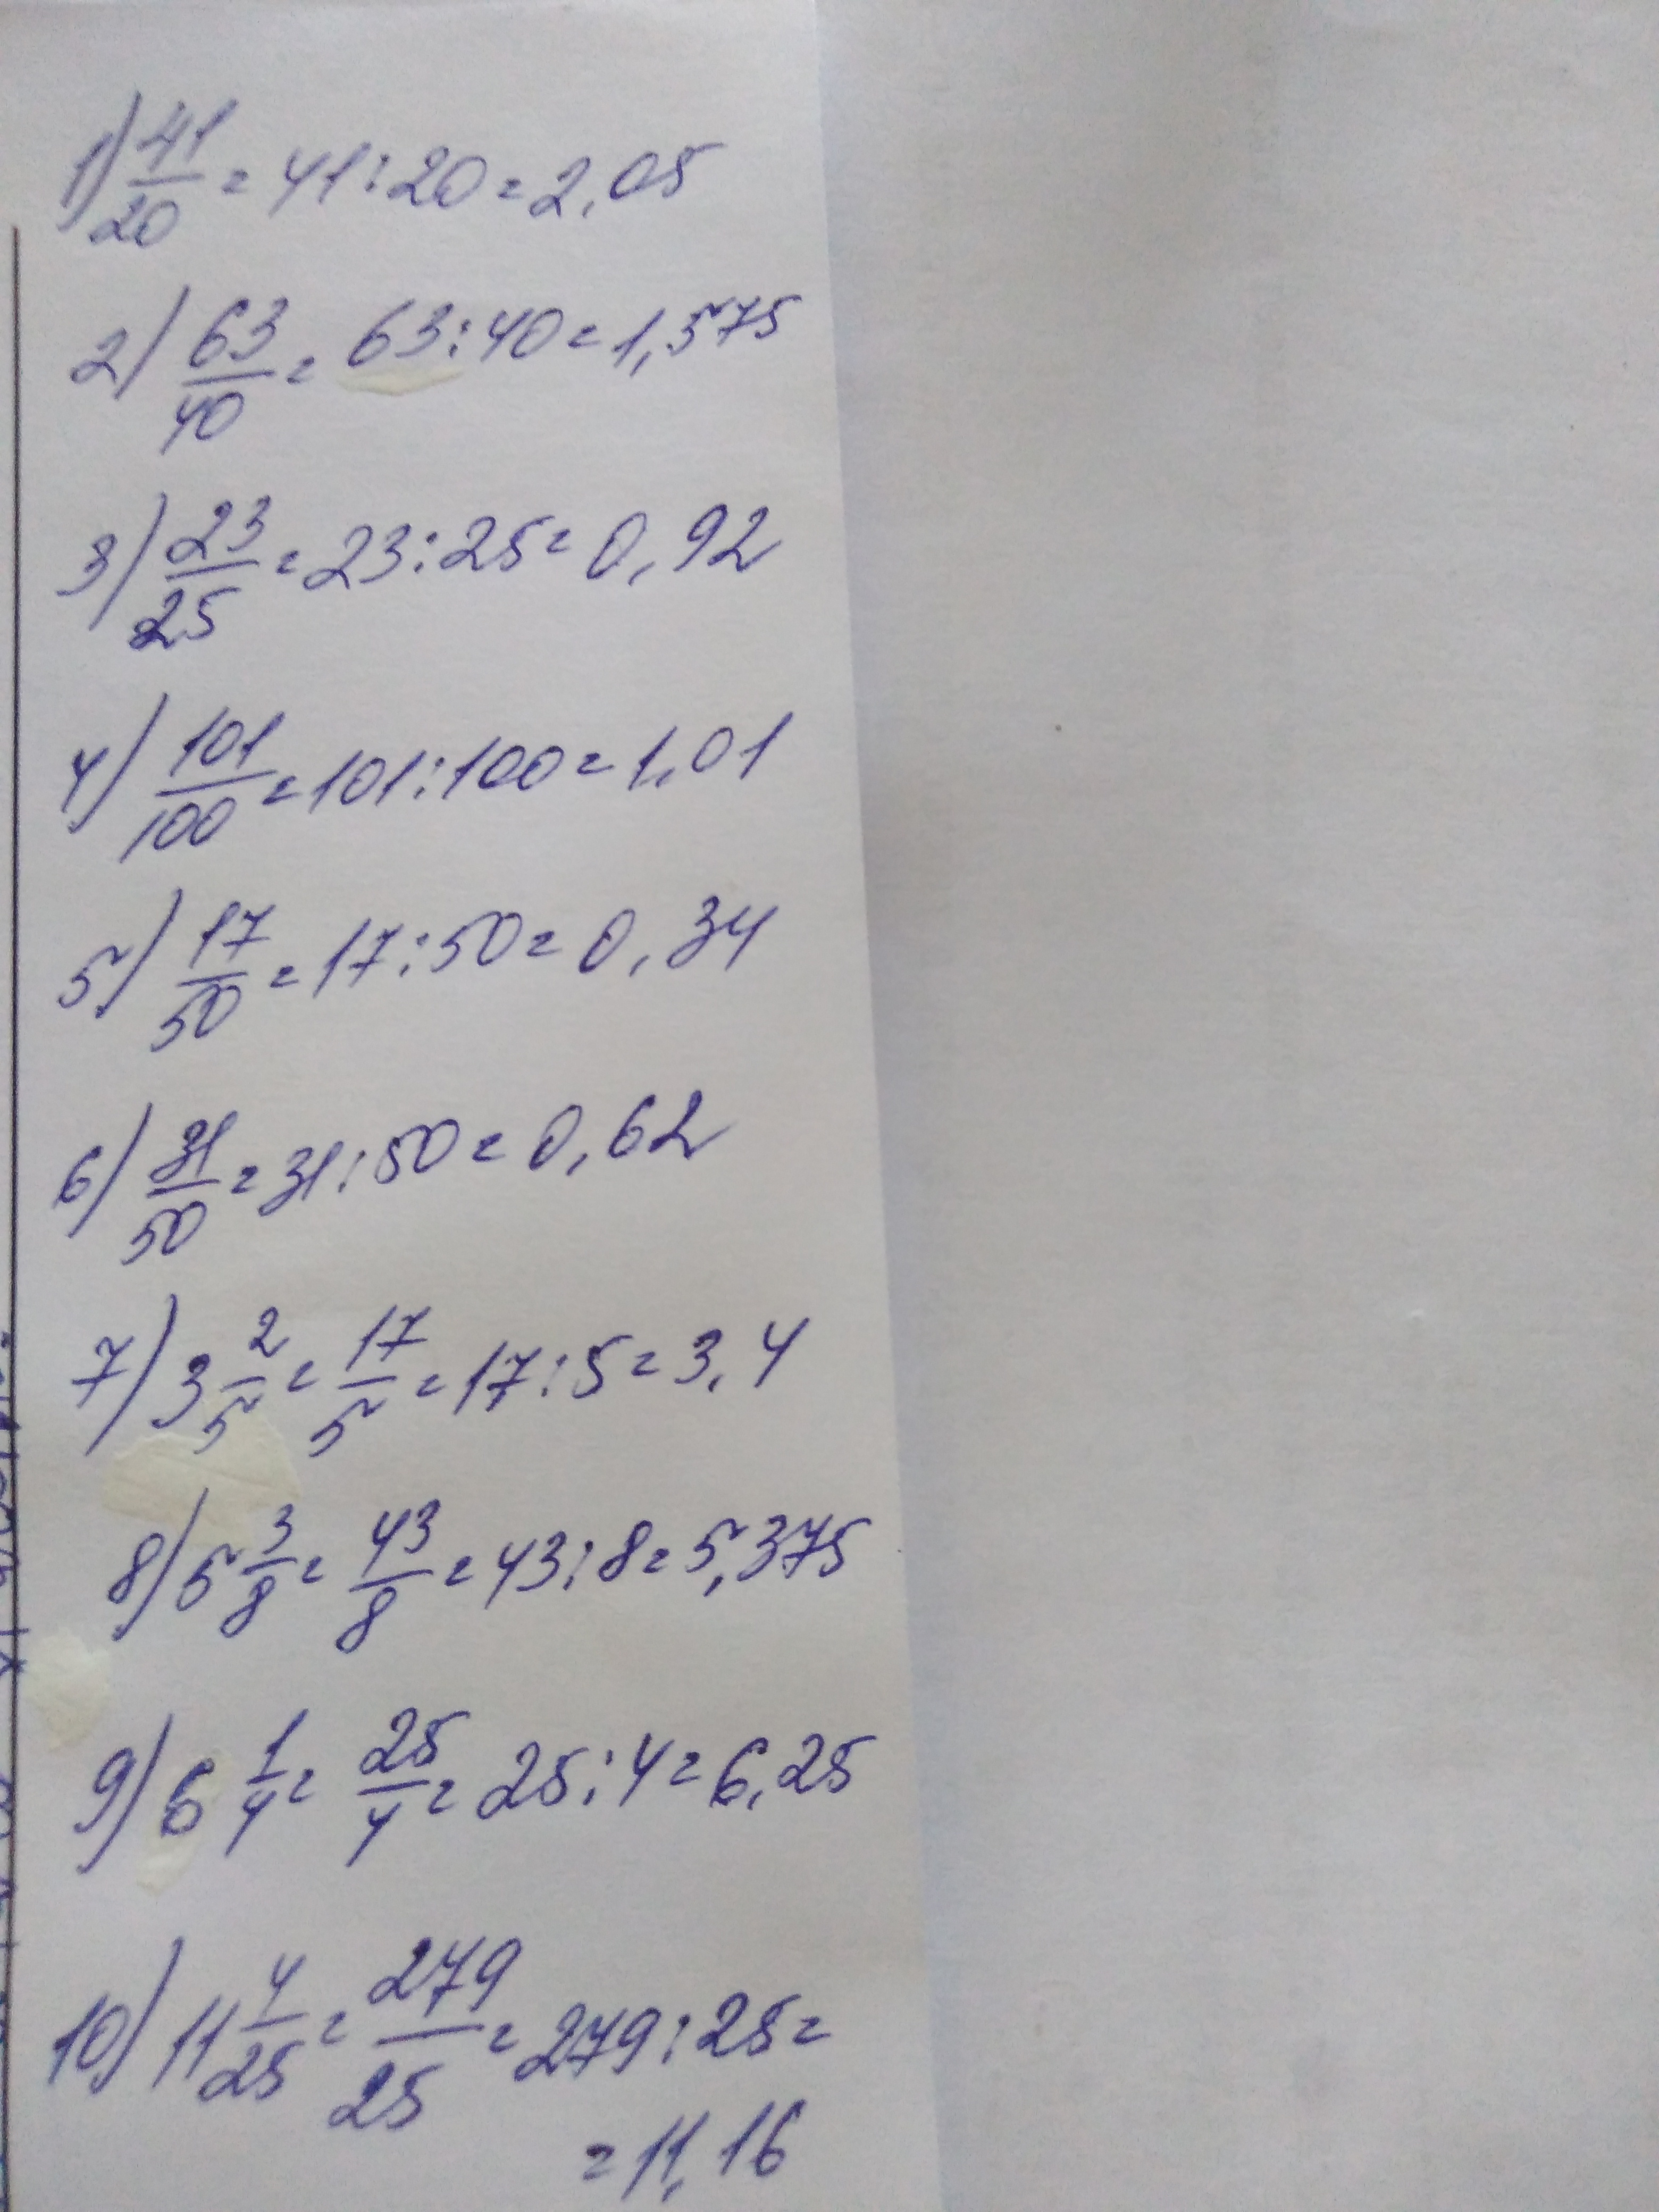 1) 41/20 = 41:20 = 2,05
2) 63/40 = 63:40 = 1,575
3) 23/25 = 23:25 = 0,92
4) 101/100 = 101:100 = 1,01
5) 17/50 = 17:50 = 0,34
6) 31/50 = 31:50 = 0,62
7) 3 2/5 = 17/5 = 17:5 = 3,4
8) 5 3/8 = 43/8 = 43:8 = 5,375
9) 6 1/4 = 25/4 = 25:4 = 6,25
10) 11 4/25 = 279/25 = 279:25 =
= 11,16